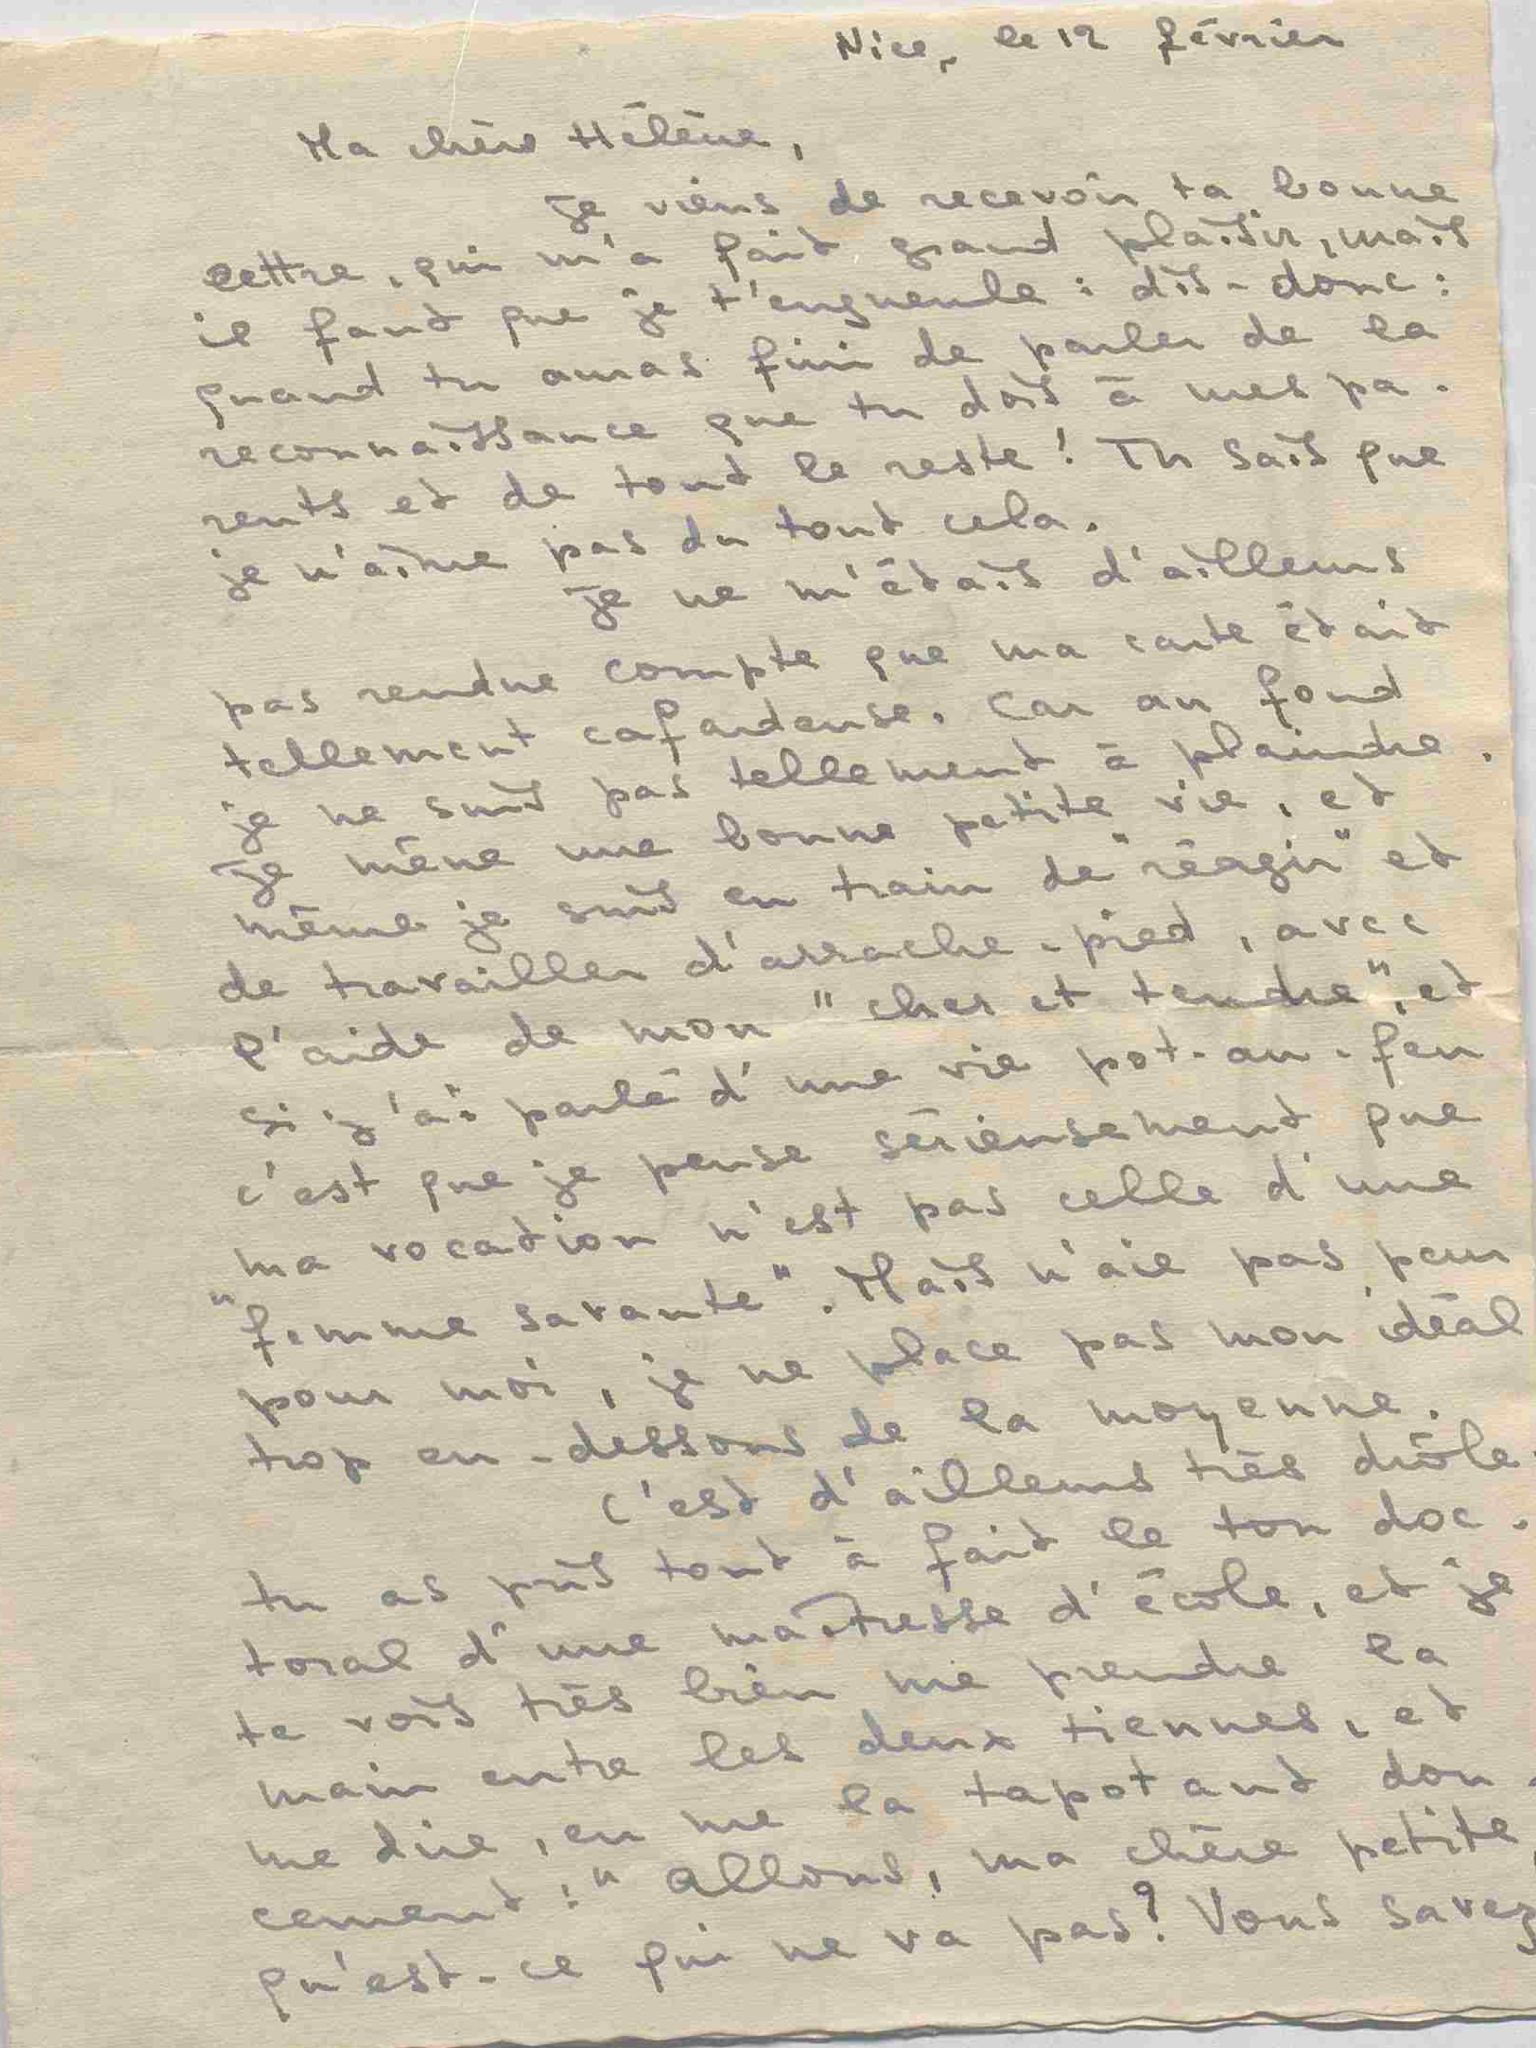 Nice, le 12 février
Ma chère Hélène,
Je viens de recevoir ta bonne
lettre, qui m'a fait grand plaisir, mais
il faut que je t'engueule : dis-donc :
quand tu auras fini de parler de la
reconnaissance que tu dois à mes pa-
rents et de tout le reste ! Tu sais que
je n'aime pas du tout cela.
Je ne m'étais d'ailleurs
pas rendue compte que ma carte était
tellement cafardeuse. Car au fond
je ne suis pas tellement à plaindre.
Je mène une bonne petite vie, et
même je suis en train de "réagir" et
de travailler d'arrache-pied, avec
l'aide de mon "cher et tendre", et
si j'ai parlé d'une vie pot-au-feu
c'est que je pense sérieusement que
ma vocation n'est pas celle d'une
"femme savante". Mais n'aie pas peur
pour moi, je ne place pas mon idéal
trop en-dessous de la moyenne.
C'est d'ailleurs très drôle :
tu as pris tout à fait le ton doc-
toral d'une maîtresse d'école, et je
te vois très bien me prendre la
main entre les deux tiennes, et
me dire, en me la tapotant dou-
cement : "Allons, ma chère petite,
qu'est-ce qui ne va pas ? Vous savez